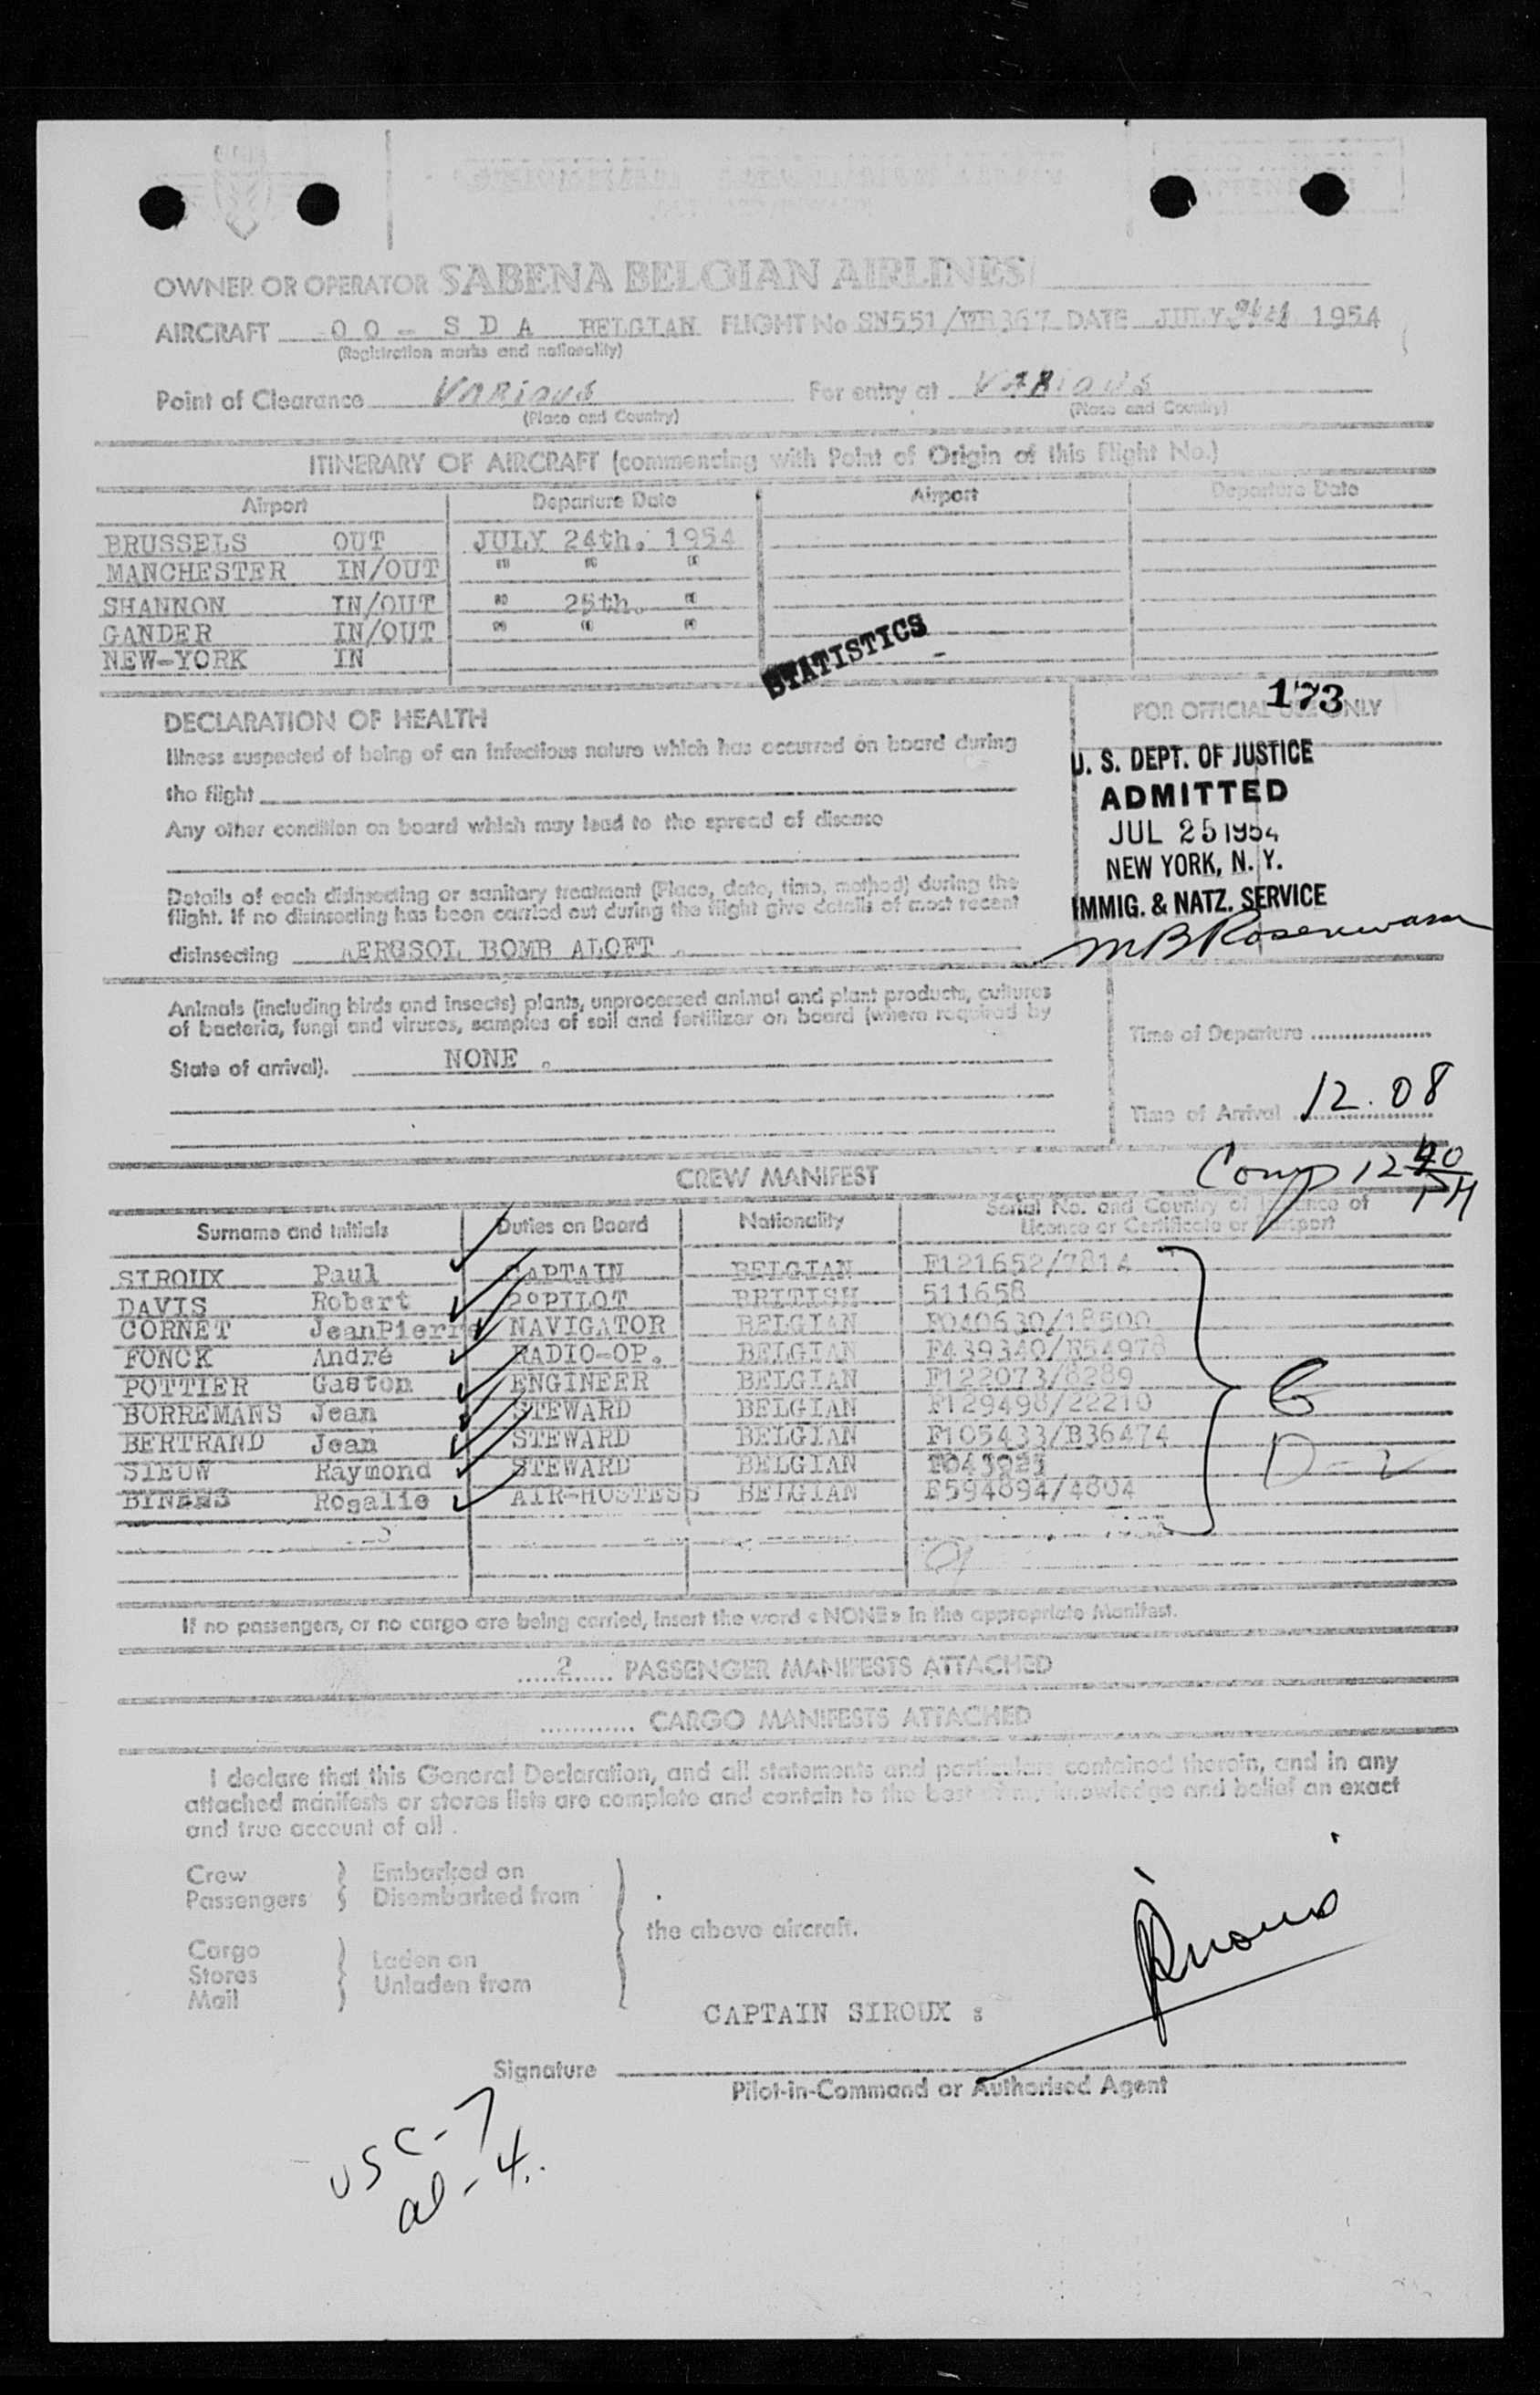 OWNER OR OPERATOR SABENA BELGIAN AIRLINES
AIRCRAFT OO - S D A BELGIAN FLIGHT No SN551/ DATE JULY 1954
(Registration marks and nationality)
Point of Clearance VARIOUS For entry at VARIOUS
(Place and Country) (Place and Country)
ITINERARY OF AIRCRAFT (commencing with Point of Origin of this Flight No.)
Airport Departure Date Airport Departure Date
BRUSSELS OUT JULY 24th. 1954
MANCHESTER IN/OUT " " "
SHANNON IN/OUT " 25th. "
GANDER IN/OUT " " "
NEW-YORK IN
STATISTICS
DECLARATION OF HEALTH
Illness suspected of being of an infectious nature which has occurred on board during
the flight
Any other condition on board which may lead to the spread of disease
Details of each disinsecting or sanitary treatment (Place, date, time, method) during the
flight. If no disinsecting has been carried out during the flight give details of most recent
disinsecting AERGSOL BOMB ALOFT .
FOR OFFICIAL USE ONLY
173
U. S. DEPT. OF JUSTICE
ADMITTED
JUL 25 1954
NEW YORK, N. Y.
IMMIG. & NATZ. SERVICE
Animals (including birds and insects) plants, unprocessed animal and plant products, cultures
of bacteria, fungi and viruses, samples of soil and fertilizer on board (where required by
State of arrival). NONE .
Time of Departure
Time of Arrival 12.08
Comp 12
CREW MANIFEST
Surname and Initials Duties on Board Nationality Serial No. and Country of Issuance of
Licence or Certificate or Passport
SIROUX Paul CAPTAIN BELGIAN F121652/7814
DAVIS Robert 2°PILOT BRITISH 511658
CORNET JeanPierre NAVIGATOR BELGIAN F040630/18500
FONCK André RADIO-OP. BELGIAN F439340/E54978
POTTIER Gaston ENGINEER BELGIAN F122073/8289
BORREMANS Jean STEWARD BELGIAN F129498/22210
BERTRAND Jean STEWARD BELGIAN F105433/B36474
SIEUW Raymond STEWARD BELGIAN
Rosalie AIR-HOSTESS BELGIAN F594894/4804
G
D-2
If no passengers, or no cargo are being carried, insert the word «NONE» in the appropriate Manifest.
2 PASSENGER MANIFESTS ATTACHED
CARGO MANIFESTS ATTACHED
I declare that this General Declaration, and all statements and particulars contained therein, and in any
attached manifests or stores lists are complete and contain to the best of my knowledge and belief an exact
and true account of all .
Crew Embarked on
Passengers Disembarked from
the above aircraft.
Cargo Laden on
Stores Unladen from
Mail
CAPTAIN SIROUX :
Signature
Pilot-in-Command or Authorised Agent
USC-7
al-4.